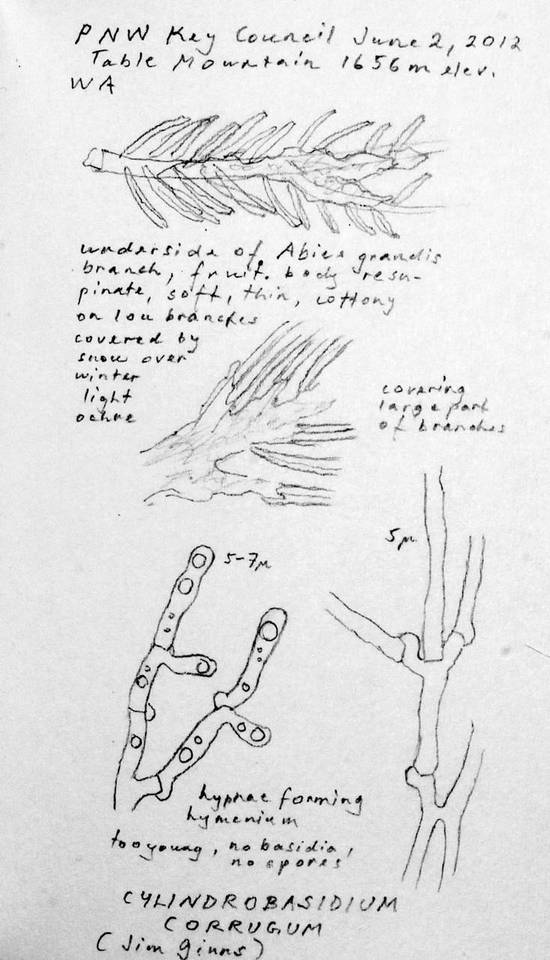 PNW Key Council June 2, 2012
Table Mountain 1656m elev.
WA
underside of Abies grandis
branch, fruit. body resu-
pinate, soft, thin, cottony
on low branches
covered by
snow over
winter
light
ochre
covering
large part
of branches
5µ
5-7µ
hyphae forming
hymenium
too young, no basidia,
no spores
CYLINDROBASIDIUM
CORRUGUM
(Jim Ginns)